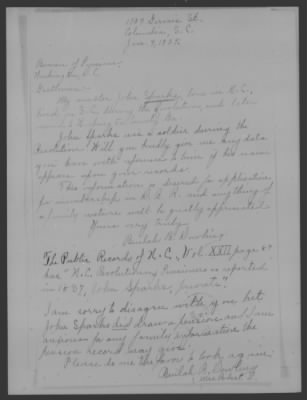 Columbia, S.C.
Jan. 9, 1935.
Bureau of Pensions,
Washington, D.C.
Gentlemen:
My ancestor John Sparks, born in N.C.,
lived in S.C. during the Revolution and later
John Sparks was a soldier during the
Revolution. Will you kindly give me any data
you have with reference to him if his name
appears upon your records.
This information is desired for application
for membership in D.A.R. and anything of
a family nature will be greatly appreciated.
Yours very truly,
Beulah B. Dowling
The Public Records of N.C., Vol. XXII, page 87
has "N.C. Revolutionary Pensioners as reported
in 1837, John Sparks, private."
I am sorry to disagree with you but
John Sparks did draw a pension and I am
anxious for any family information the
pension record may give.
Please do me the favor to look again.
Beulah B. Dowling